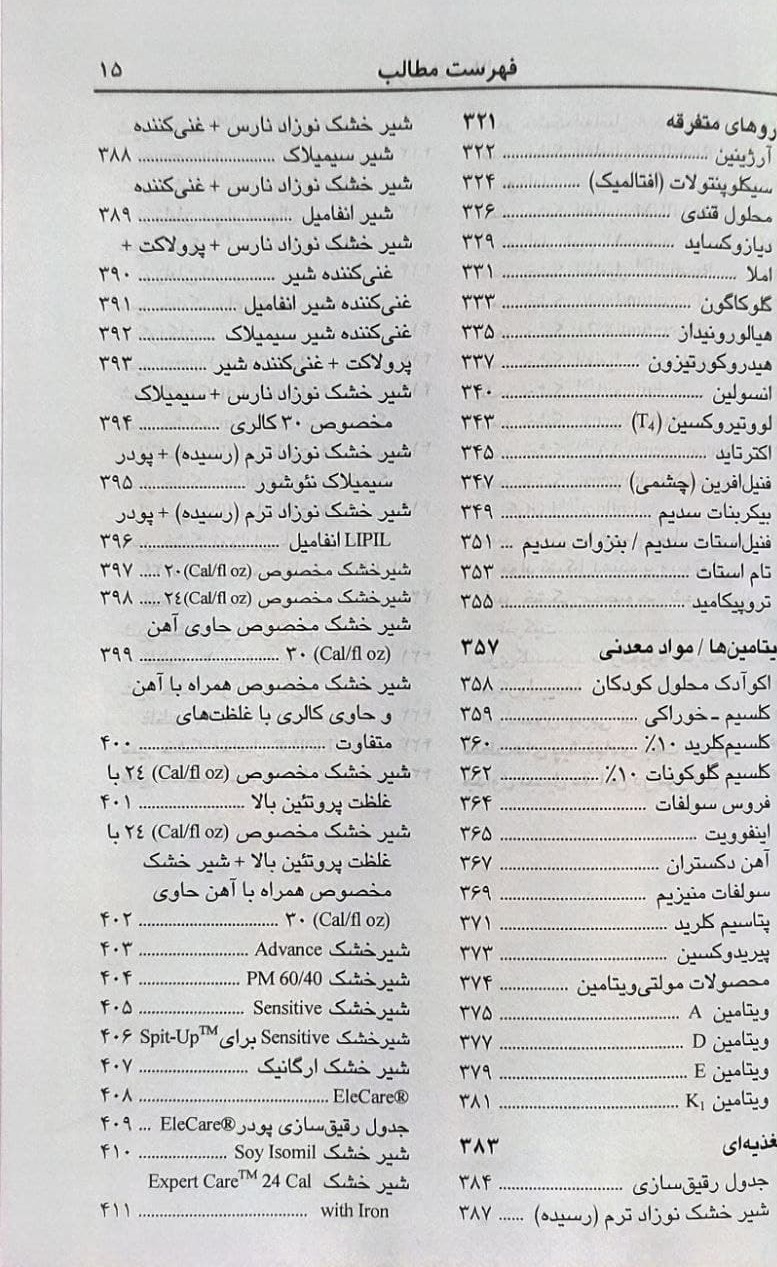 فهرست مطالب ۱۵
روهای متفرقه ۳۲۱
آرژینین ........ ۳۲۲
سیکلوپنتولات (افتالمیک) ........ ۳۲۴
محلول قندی ........ ۳۲۶
دیازوکساید ........ ۳۲۹
املا ........ ۳۳۱
گلوکاگون ........ ۳۳۳
هیالورونیداز ........ ۳۳۵
هیدروکورتیزون ........ ۳۳۷
انسولین ........ ۳۴۰
لووتیروکسین (T₄) ........ ۳۴۳
اکترتاید ........ ۳۴۵
فنیل‌افرین (چشمی) ........ ۳۴۷
بیکربنات سدیم ........ ۳۴۹
فنیل‌استات سدیم / بنزوات سدیم ... ۳۵۱
تام استات ........ ۳۵۳
تروپیکامید ........ ۳۵۵
یتامین‌ها / مواد معدنی ۳۵۷
اکوآدک محلول کودکان ........ ۳۵۸
کلسیم - خوراکی ........ ۳۵۹
کلسیم‌کلرید ۱۰٪ ........ ۳۶۰
کلسیم گلوکونات ۱۰٪ ........ ۳۶۲
فروس سولفات ........ ۳۶۴
اینفوویت ........ ۳۶۵
آهن دکستران ........ ۳۶۷
سولفات منیزیم ........ ۳۶۹
پتاسیم کلرید ........ ۳۷۱
پیریدوکسین ........ ۳۷۳
محصولات مولتی‌ویتامین ........ ۳۷۴
ویتامین A ........ ۳۷۵
ویتامین D ........ ۳۷۷
ویتامین E ........ ۳۷۹
ویتامین K₁ ........ ۳۸۱
غذیه‌ای ۳۸۳
جدول رقیق‌سازی ........ ۳۸۴
شیر خشک نوزاد ترم (رسیده) ...... ۳۸۷
شیر خشک نوزاد نارس + غنی‌کننده
شیر سیمیلاک ........ ۳۸۸
شیر خشک نوزاد نارس + غنی‌کننده
شیر انفامیل ........ ۳۸۹
شیر خشک نوزاد نارس + پرولاکت +
غنی‌کننده شیر ........ ۳۹۰
غنی‌کننده شیر انفامیل ........ ۳۹۱
غنی‌کننده شیر سیمیلاک ........ ۳۹۲
پرولاکت + غنی‌کننده شیر ........ ۳۹۳
شیر خشک نوزاد نارس + سیمیلاک
مخصوص ۳۰ کالری ........ ۳۹۴
شیر خشک نوزاد ترم (رسیده) + پودر
سیمیلاک نئوشور ........ ۳۹۵
شیر خشک نوزاد ترم (رسیده) + پودر
LIPIL انفامیل ........ ۳۹۶
شیرخشک مخصوص ۲۰(Cal/fl oz) ..... ۳۹۷
شیرخشک مخصوص ۲۴(Cal/fl oz) ..... ۳۹۸
شیر خشک مخصوص حاوی آهن
۳۰ (Cal/fl oz) ........ ۳۹۹
شیر خشک مخصوص همراه با آهن
و حاوی کالری با غلظت‌های
متفاوت ........ ۴۰۰
شیر خشک مخصوص ۲۴ (Cal/fl oz) با
غلظت پروتئین بالا ........ ۴۰۱
شیر خشک مخصوص ۲۴ (Cal/fl oz) با
غلظت پروتئین بالا + شیر خشک
مخصوص همراه با آهن حاوی
۳۰ (Cal/fl oz) ........ ۴۰۲
شیرخشک Advance ........ ۴۰۳
شیرخشک PM 60/40 ........ ۴۰۴
شیرخشک Sensitive ........ ۴۰۵
شیرخشک Sensitive برای Spit-Up™ ۴۰۶
شیر خشک ارگانیک ........ ۴۰۷
EleCare® ........ ۴۰۸
جدول رقیق‌سازی پودر EleCare® ... ۴۰۹
شیر خشک Soy Isomil ........ ۴۱۰
شیر خشک Expert Care™ 24 Cal
with Iron ........ ۴۱۱